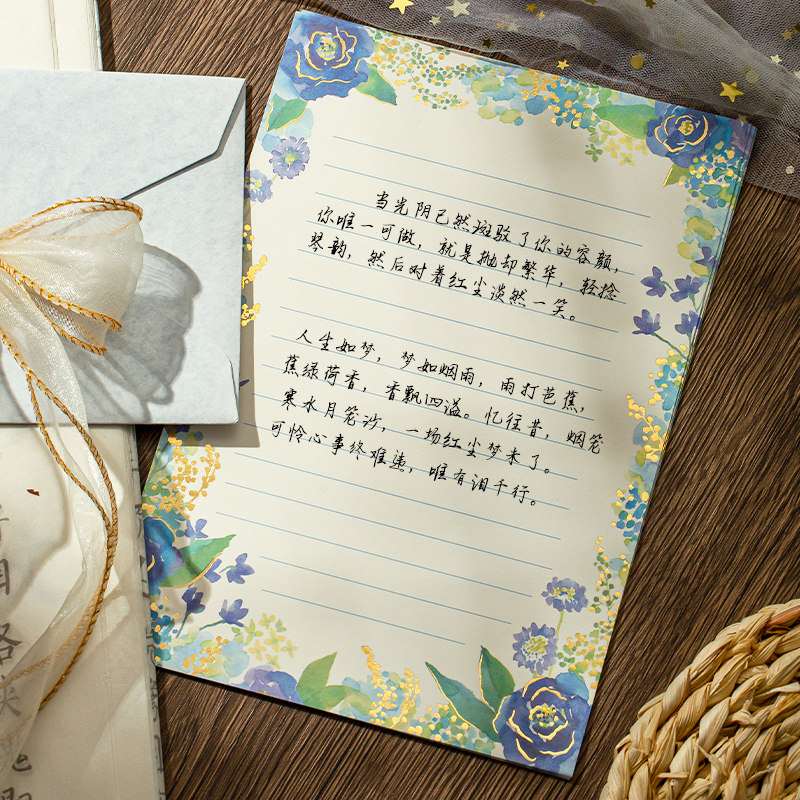 当光阴已然斑驳了你的容颜，
你唯一可做，就是抛却繁华，轻捻
琴韵，然后对着红尘淡然一笑。
人生如梦，梦如烟雨，雨打芭蕉，
蕉绿荷香，香飘四溢。忆往昔，烟笼
寒水月笼沙，一场红尘梦未了。
可怜心事终难遣，唯有泪千行。